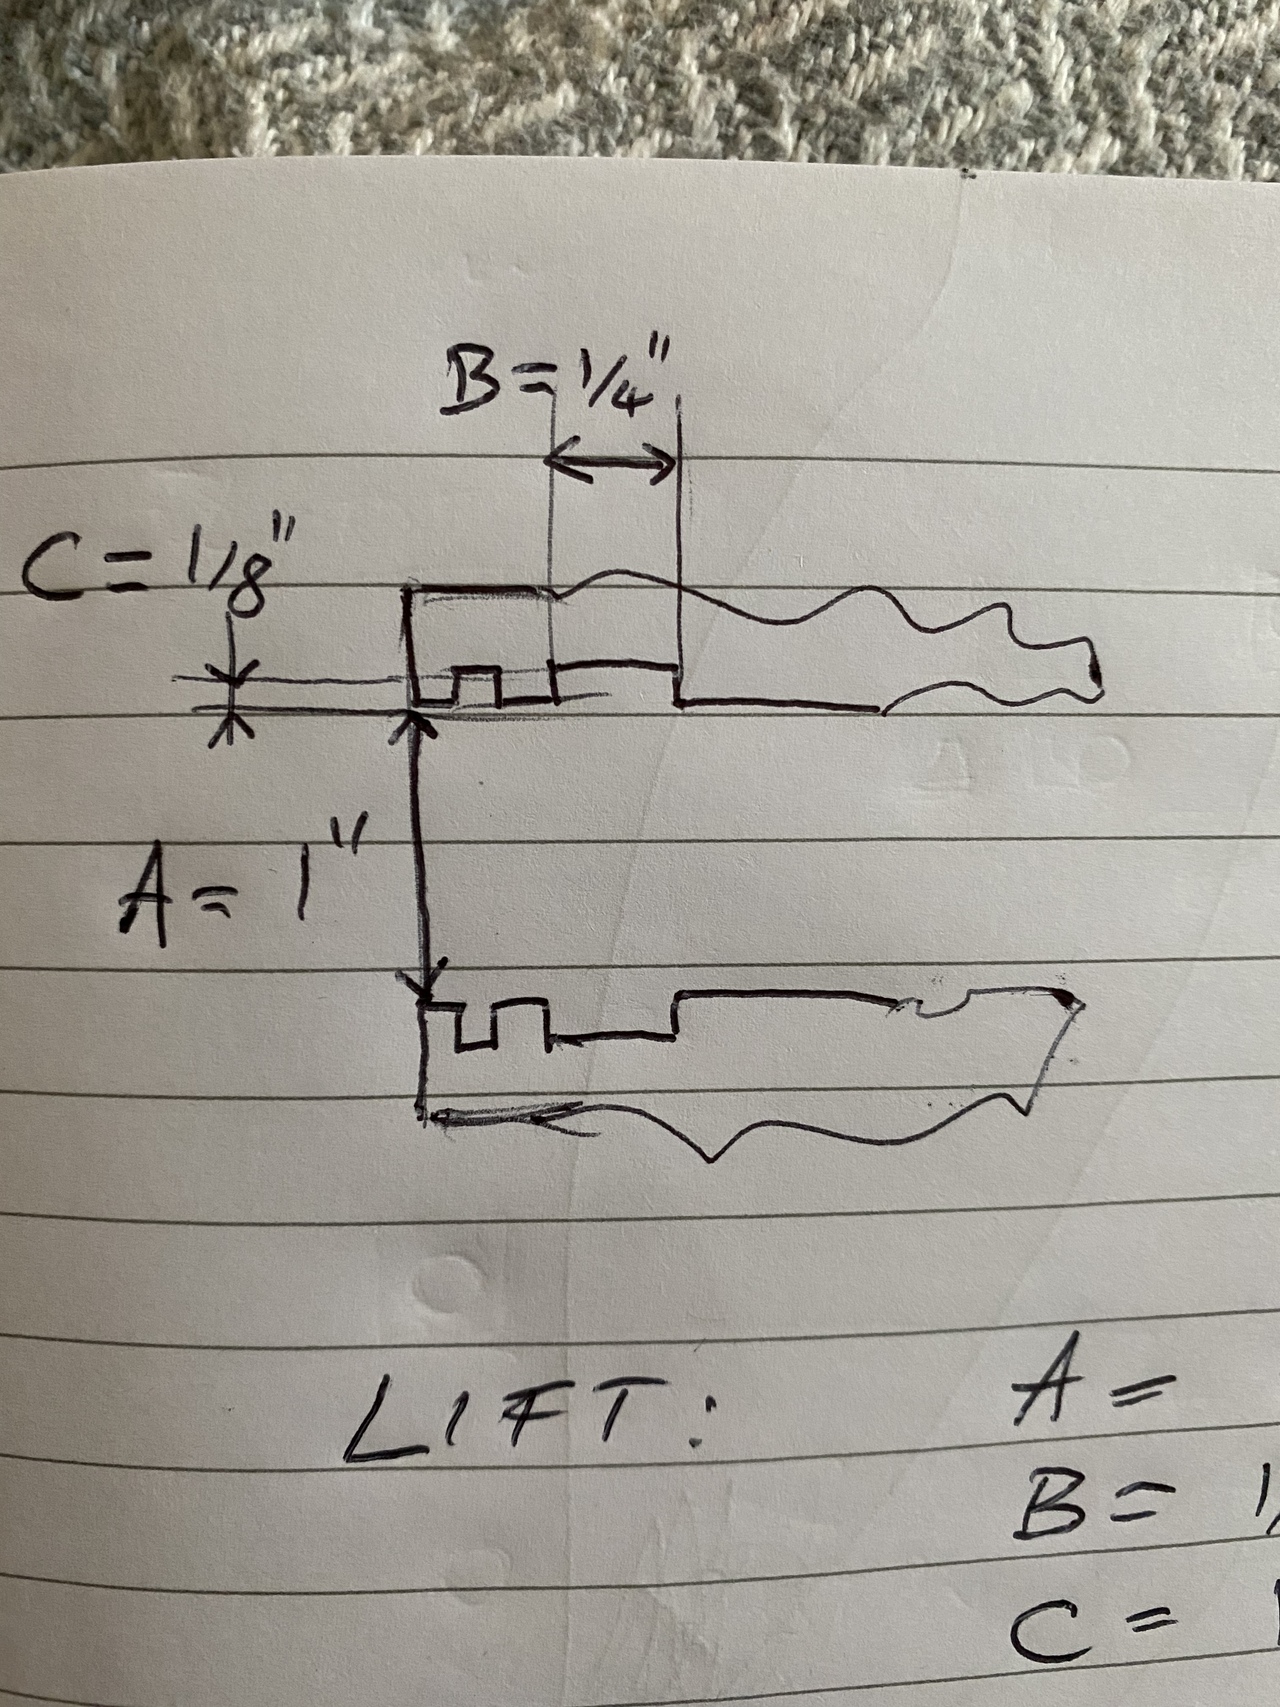 B = 1/4"
C = 1/8"
A = 1"
LIFT: A =
B =
C =